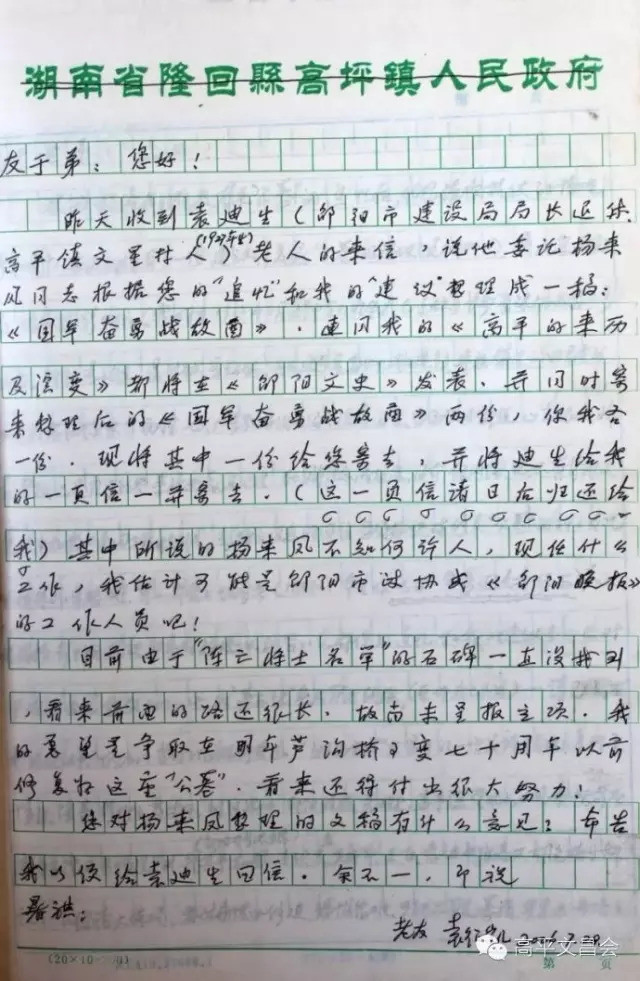 湖南省隆回縣高坪鎮人民政府
友于弟：您好！
昨天收到袁迪生（邵阳市建设局局长退休
高平镇文星村人）老人的来信，说他委托杨来
风同志根据您的“追忆”和我的“建议”整理成一稿：
《国军奋勇战放酋》．连同我的《高平的来历
及演变》都将在《邵阳文史》发表．并同时寄
来整理后的《国军奋勇战放酋》两份，你我各
一份．现将其中一份给您寄去，并将迪生给我
的一页信一并寄去．（这一页信请日后归还给
我）其中所说的杨来风不知何许人，现任什么
工作，我估计可能是邵阳市政协或《邵阳晚报》
的工作人员吧！
目前由于“阵亡将士名单”的石碑一直没找到
，看来前面的路还很长．故尚未呈报立项．我
的意思是争取在明年芦沟桥事变七十周年以前
修复好这座“公墓”．看来还得付出很大努力！
您对杨来风整理的文稿有什么意见？希告
我以便给袁迪生回信．余不一，即祝
暑祺：
老友 2006.7.28
(20×10
第 页
高平文昌会